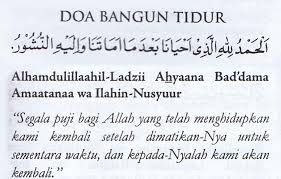 DOA BANGUN TIDUR
اَلْحَمْدُ لِلّٰهِ الَّذِيْ اَحْيَانَا بَعْدَ مَا اَمَاتَنَا وَاِلَيْهِ النُّشُوْرُ.
Alhamdulillaahil-Ladzii Ahyaana Bad'dama
Amaatanaa wa Ilahin-Nusyuur
“Segala puji bagi Allah yang telah menghidupkan
kami kembali setelah dimatikan-Nya untuk
sementara waktu, dan kepada-Nyalah kami akan
kembali.”